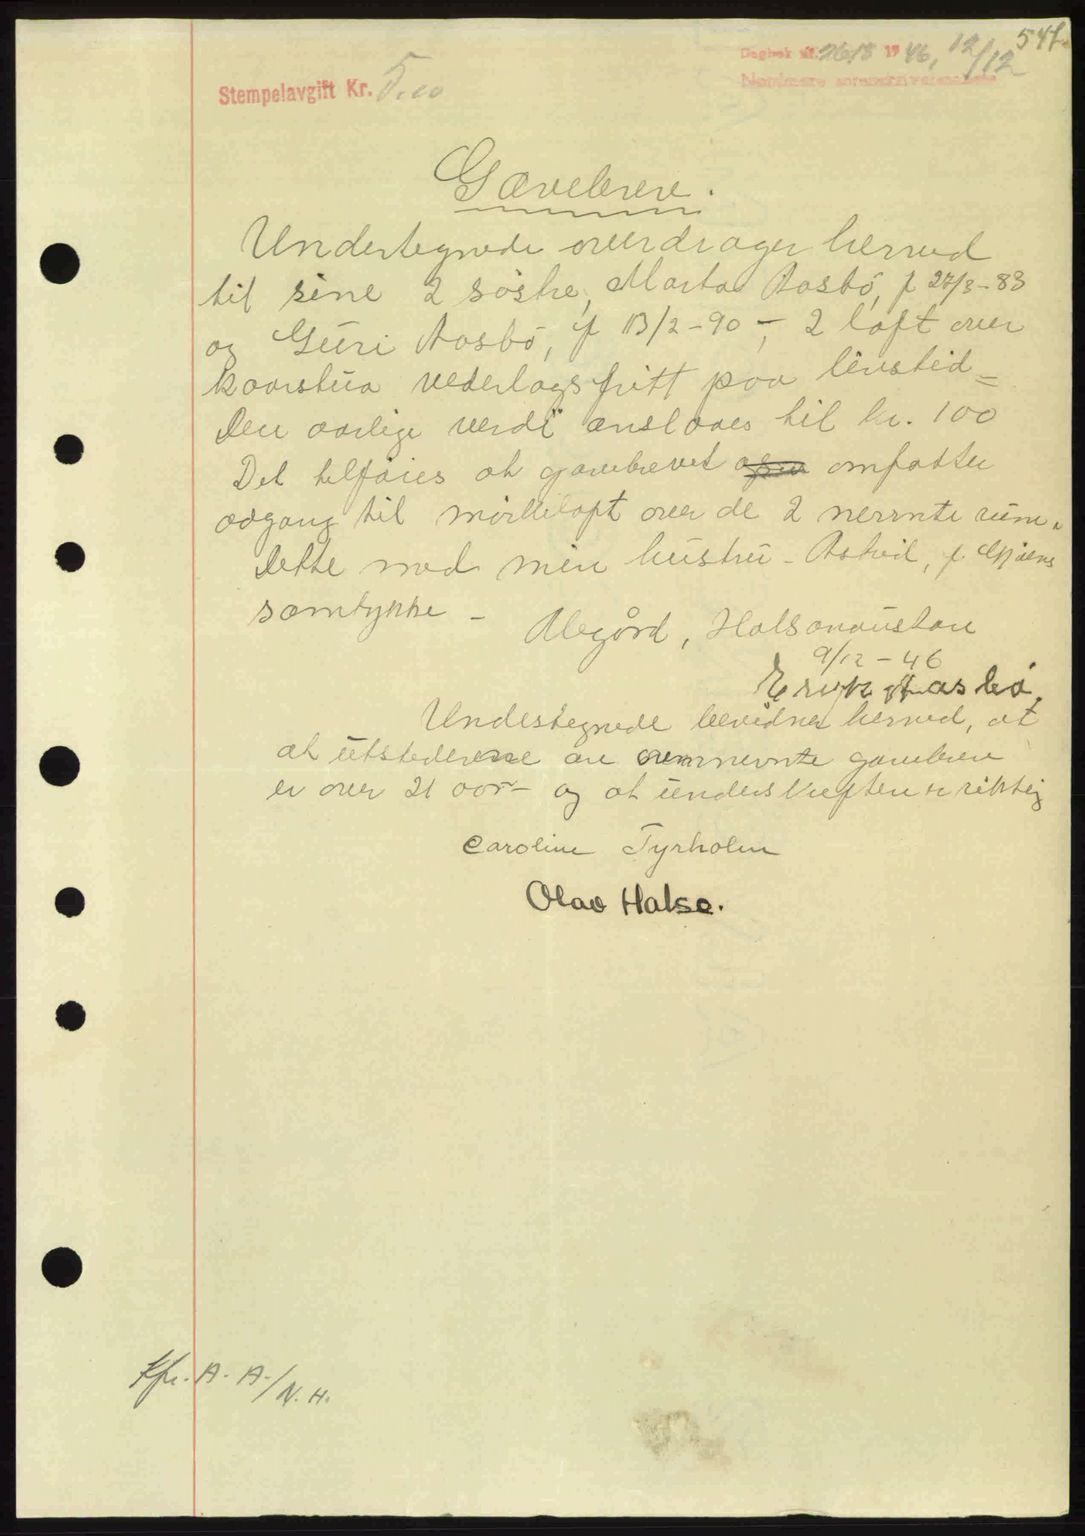 547.
Dagbok nr. 2618 1946, 12/12
Nordmøre sorenskriverembete
Stempelavgift Kr. 5.00
Gavebrev.
Undertegnede overdrager herved
til sine 2 søstre, Marta Aasbö, f 27/3-83
og Guri Aasbö, f 13/2-90 -, 2 loft over
kaarstua vederlagsfritt paa livstid=
Den aarlige verdi anslaaes til kr. 100
Det tilföies at gavebrevet omfatter
adgang til mörkeloft over de 2 nevnte rum.
Dette med min hustru - Astrid, f
samtykke -
Aasgård, Halsanaustan
9/12-46
Eryk Aasbö.
Undertegnede bevidner herved, at
at utstederene av ovennevnte gavebrev
er over 21 aar - og at underskriften er riktig
Caroline Tyrholm
Olav Halse.
Kfr. A. A./N. H.